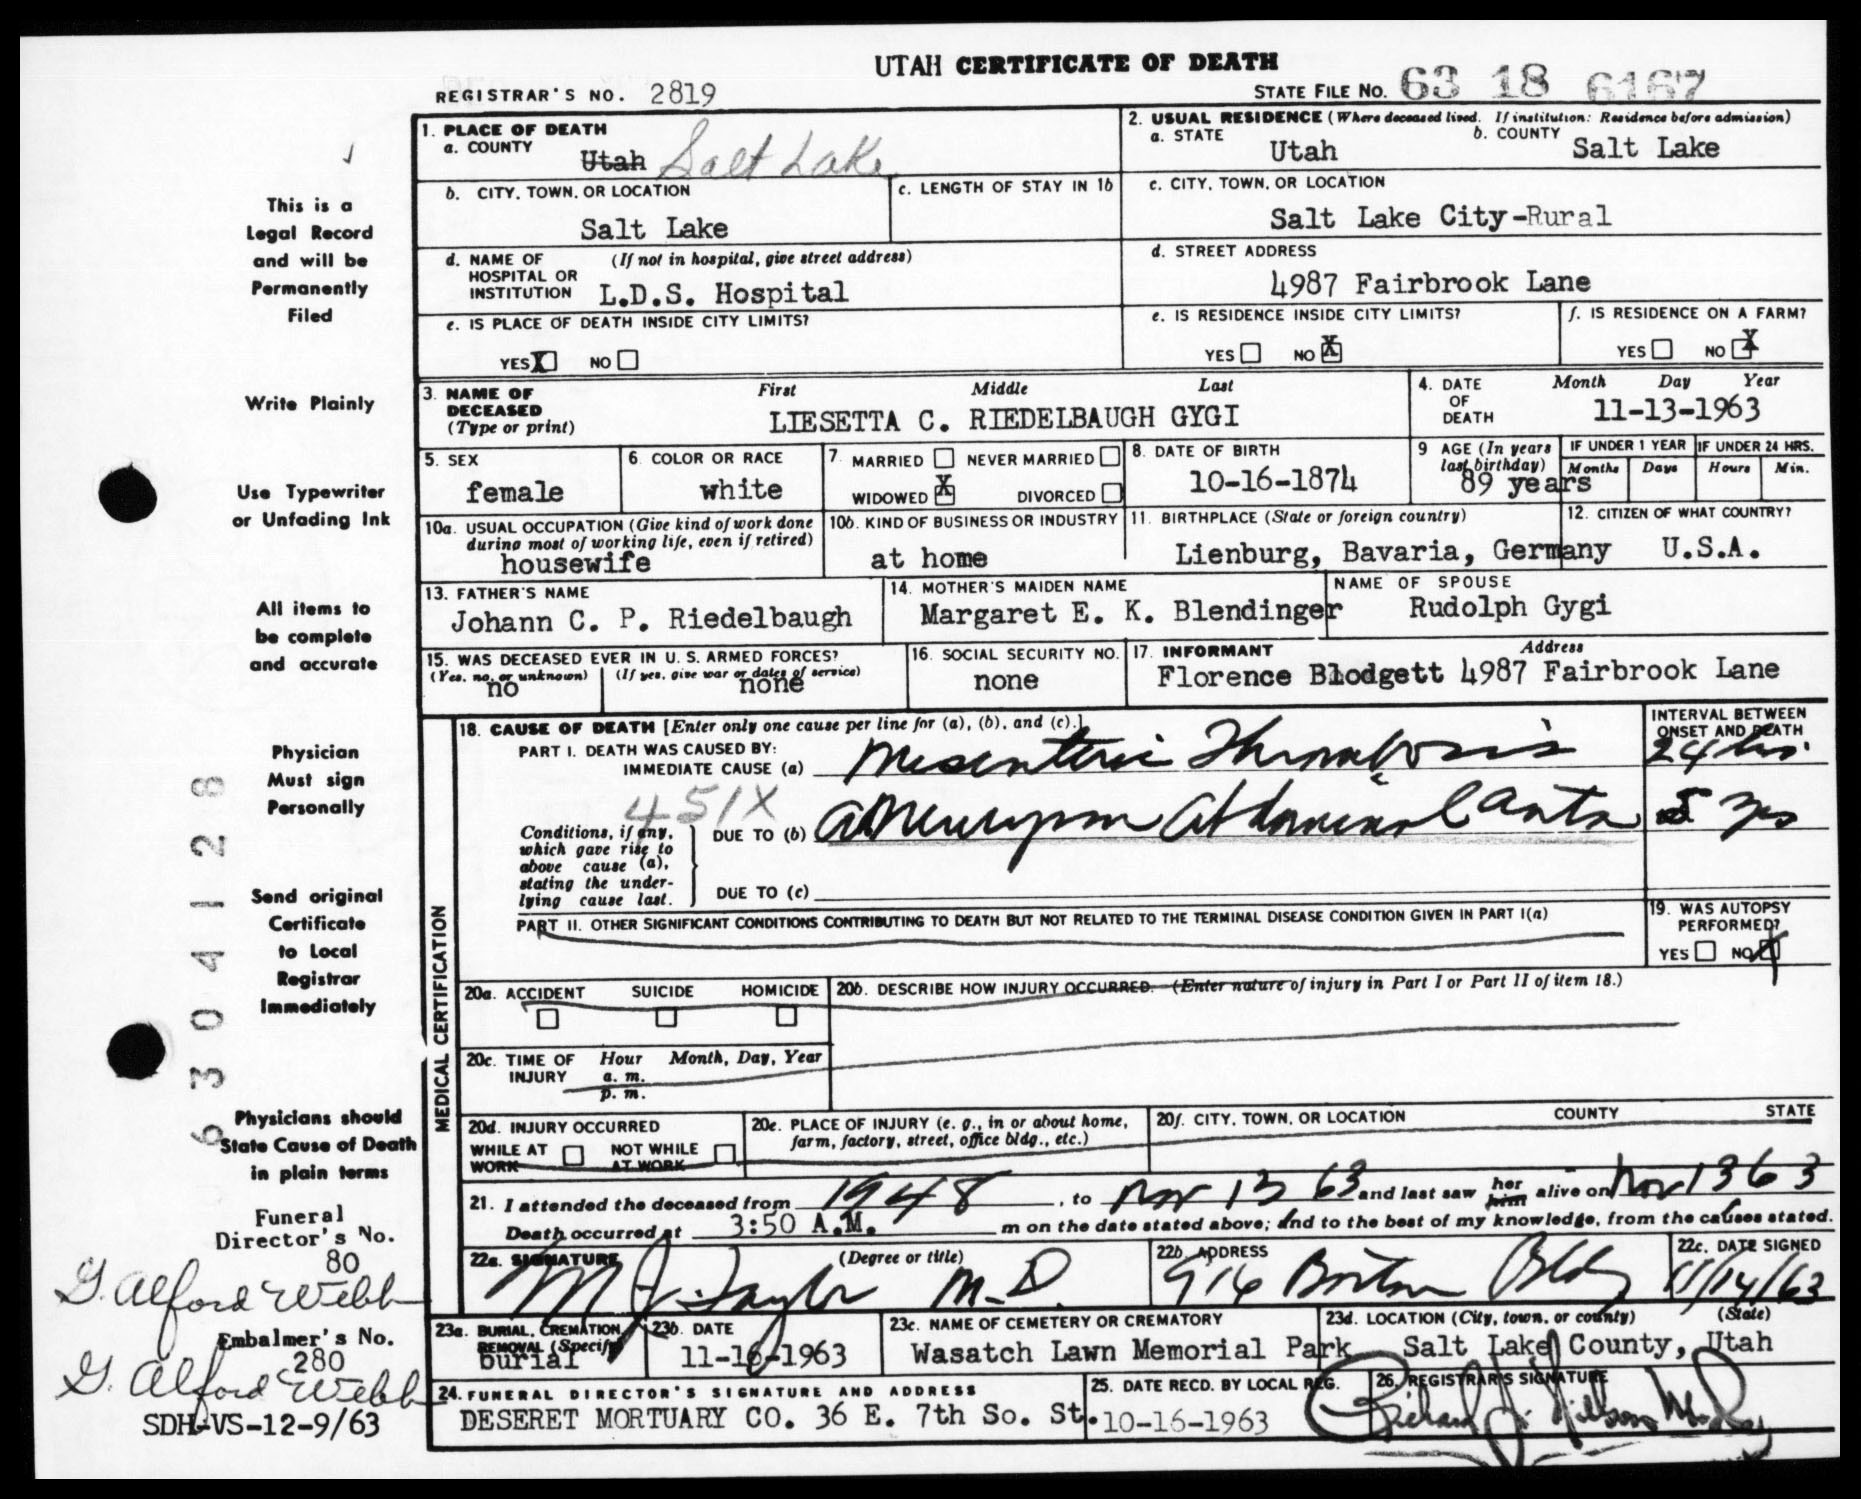 UTAH CERTIFICATE OF DEATH
REGISTRAR'S NO. 2819
STATE FILE NO. 63 18 6167
1. PLACE OF DEATH
a. COUNTY
Utah Salt Lake
2. USUAL RESIDENCE (Where deceased lived. If institution: Residence before admission)
a. STATE Utah
b. COUNTY Salt Lake
b. CITY, TOWN, OR LOCATION
Salt Lake
c. LENGTH OF STAY IN 1b
c. CITY, TOWN, OR LOCATION
Salt Lake City-Rural
d. NAME OF HOSPITAL OR INSTITUTION (If not in hospital, give street address)
L.D.S. Hospital
d. STREET ADDRESS
4987 Fairbrook Lane
e. IS PLACE OF DEATH INSIDE CITY LIMITS?
YES X NO
e. IS RESIDENCE INSIDE CITY LIMITS?
YES NO X
f. IS RESIDENCE ON A FARM?
YES NO X
3. NAME OF DECEASED (Type or print)
First Middle Last
LIESETTA C. RIEDELBAUGH GYGI
4. DATE OF DEATH
Month Day Year
11-13-1963
5. SEX
female
6. COLOR OR RACE
white
7. MARRIED NEVER MARRIED
WIDOWED X DIVORCED
8. DATE OF BIRTH
10-16-1874
9 AGE (In years last birthday)
89 years
IF UNDER 1 YEAR
Months Days
IF UNDER 24 HRS.
Hours Min.
10a. USUAL OCCUPATION (Give kind of work done during most of working life, even if retired)
housewife
10b. KIND OF BUSINESS OR INDUSTRY
at home
11. BIRTHPLACE (State or foreign country)
Lienburg, Bavaria, Germany
12. CITIZEN OF WHAT COUNTRY?
U.S.A.
13. FATHER'S NAME
Johann C. P. Riedelbaugh
14. MOTHER'S MAIDEN NAME
Margaret E. K. Blendinger
NAME OF SPOUSE
Rudolph Gygi
15. WAS DECEASED EVER IN U.S. ARMED FORCES?
(Yes, no, or unknown) (If yes, give war or dates of service)
no none
16. SOCIAL SECURITY NO.
none
17. INFORMANT Address
Florence Blodgett 4987 Fairbrook Lane
MEDICAL CERTIFICATION
18. CAUSE OF DEATH [Enter only one cause per line for (a), (b), and (c).]
PART I. DEATH WAS CAUSED BY:
IMMEDIATE CAUSE (a) Mesenteric Thrombosis
INTERVAL BETWEEN ONSET AND DEATH
24 hrs.
451X
Conditions, if any, which gave rise to above cause (a), stating the underlying cause last.
DUE TO (b) Aneurysm Abdominal Aorta 5 yrs
DUE TO (c)
PART II. OTHER SIGNIFICANT CONDITIONS CONTRIBUTING TO DEATH BUT NOT RELATED TO THE TERMINAL DISEASE CONDITION GIVEN IN PART I(a)
19. WAS AUTOPSY PERFORMED?
YES NO X
20a. ACCIDENT SUICIDE HOMICIDE
20b. DESCRIBE HOW INJURY OCCURRED. (Enter nature of injury in Part I or Part II of item 18.)
20c. TIME OF INJURY Hour Month, Day, Year
a. m.
p. m.
20d. INJURY OCCURRED
WHILE AT WORK NOT WHILE AT WORK
20e. PLACE OF INJURY (e. g., in or about home, farm, factory, street, office bldg., etc.)
20f. CITY, TOWN, OR LOCATION COUNTY STATE
21. I attended the deceased from 1948, to Nov 13 63 and last saw her him alive on Nov 13 63
Death occurred at 3:50 A.M. m on the date stated above; and to the best of my knowledge, from the causes stated.
22a. SIGNATURE (Degree or title)
M J. Taylor M.D.
22b. ADDRESS
916 Boston Bldg
22c. DATE SIGNED
11/14/63
23a. BURIAL, CREMATION, REMOVAL (Specify)
burial
23b. DATE
11-16-1963
23c. NAME OF CEMETERY OR CREMATORY
Wasatch Lawn Memorial Park
23d. LOCATION (City, town, or county) (State)
Salt Lake County, Utah
24. FUNERAL DIRECTOR'S SIGNATURE AND ADDRESS
DESERET MORTUARY CO. 36 E. 7th So. St.
25. DATE RECD. BY LOCAL REG.
10-16-1963
26. REGISTRAR'S SIGNATURE
This is a
Legal Record
and will be
Permanently
Filed
Write Plainly
Use Typewriter
or Unfading Ink
All items to
be complete
and accurate
Physician
Must sign
Personally
Send original
Certificate
to Local
Registrar
Immediately
Physicians should
State Cause of Death
in plain terms
6304128
Funeral
Director's No.
80
G. Alford Webb
Embalmer's No.
280
G. Alford Webb
SDH-VS-12-9/63